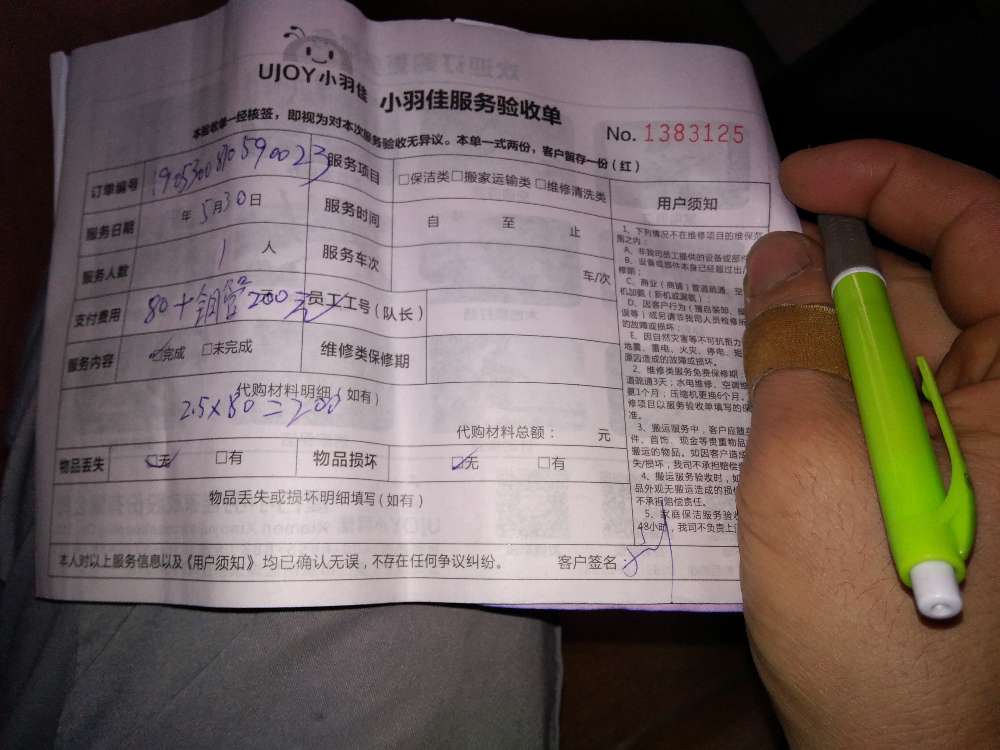 UJOY小羽佳 小羽佳服务验收单
No. 1383125
本验收单一经核签，即视为对本次服务验收无异议。本单一式两份，客户留存一份(红)
订单编号 服务项目 □保洁类□搬家运输类□维修清洗类
服务日期 年5月30日 服务时间 自 至 止
服务人数 1人 服务车次 车/次
支付费用 80+铜管200元 员工工号(队长)
服务内容 ☑完成 □未完成 维修类保修期
代购材料明细(如有)
2.5×80=200
代购材料总额： 元
物品丢失 ☑无 □有 物品损坏 ☑无 □有
物品丢失或损坏明细填写(如有)
本人对以上服务信息以及《用户须知》均已确认无误，不存在任何争议纠纷。 客户签名：
用户须知
1、下列情况不在维修项目的维保范
围之内：
A、非我司员工提供的设备或部件
B、设备或部件本身已经超过出
修期；
C、商业(商铺)管道疏通、空
机加氨(新机或漏氨)；
D、因客户行为
的故障或损坏；
E、因自然灾害等不可抗拒力
地震、雷电、火灾、停电、短
原因造成的故障或损坏。
2、维修类服务免费保修期：
道疏通3天；水电维修、空调
氨1个月；压缩机更换6个月。
修项目以服务验收单填写的保
准。
3、搬运服务中，客户应随
件、首饰、现金等贵重物品
搬运的物品。如因客户造成
失/损坏，我司不承担赔偿
4、搬运服务验收时，如
品外观无搬运造成的损
不承担赔偿责任。
5、家庭保洁服务验收
48小时，我司不负责上